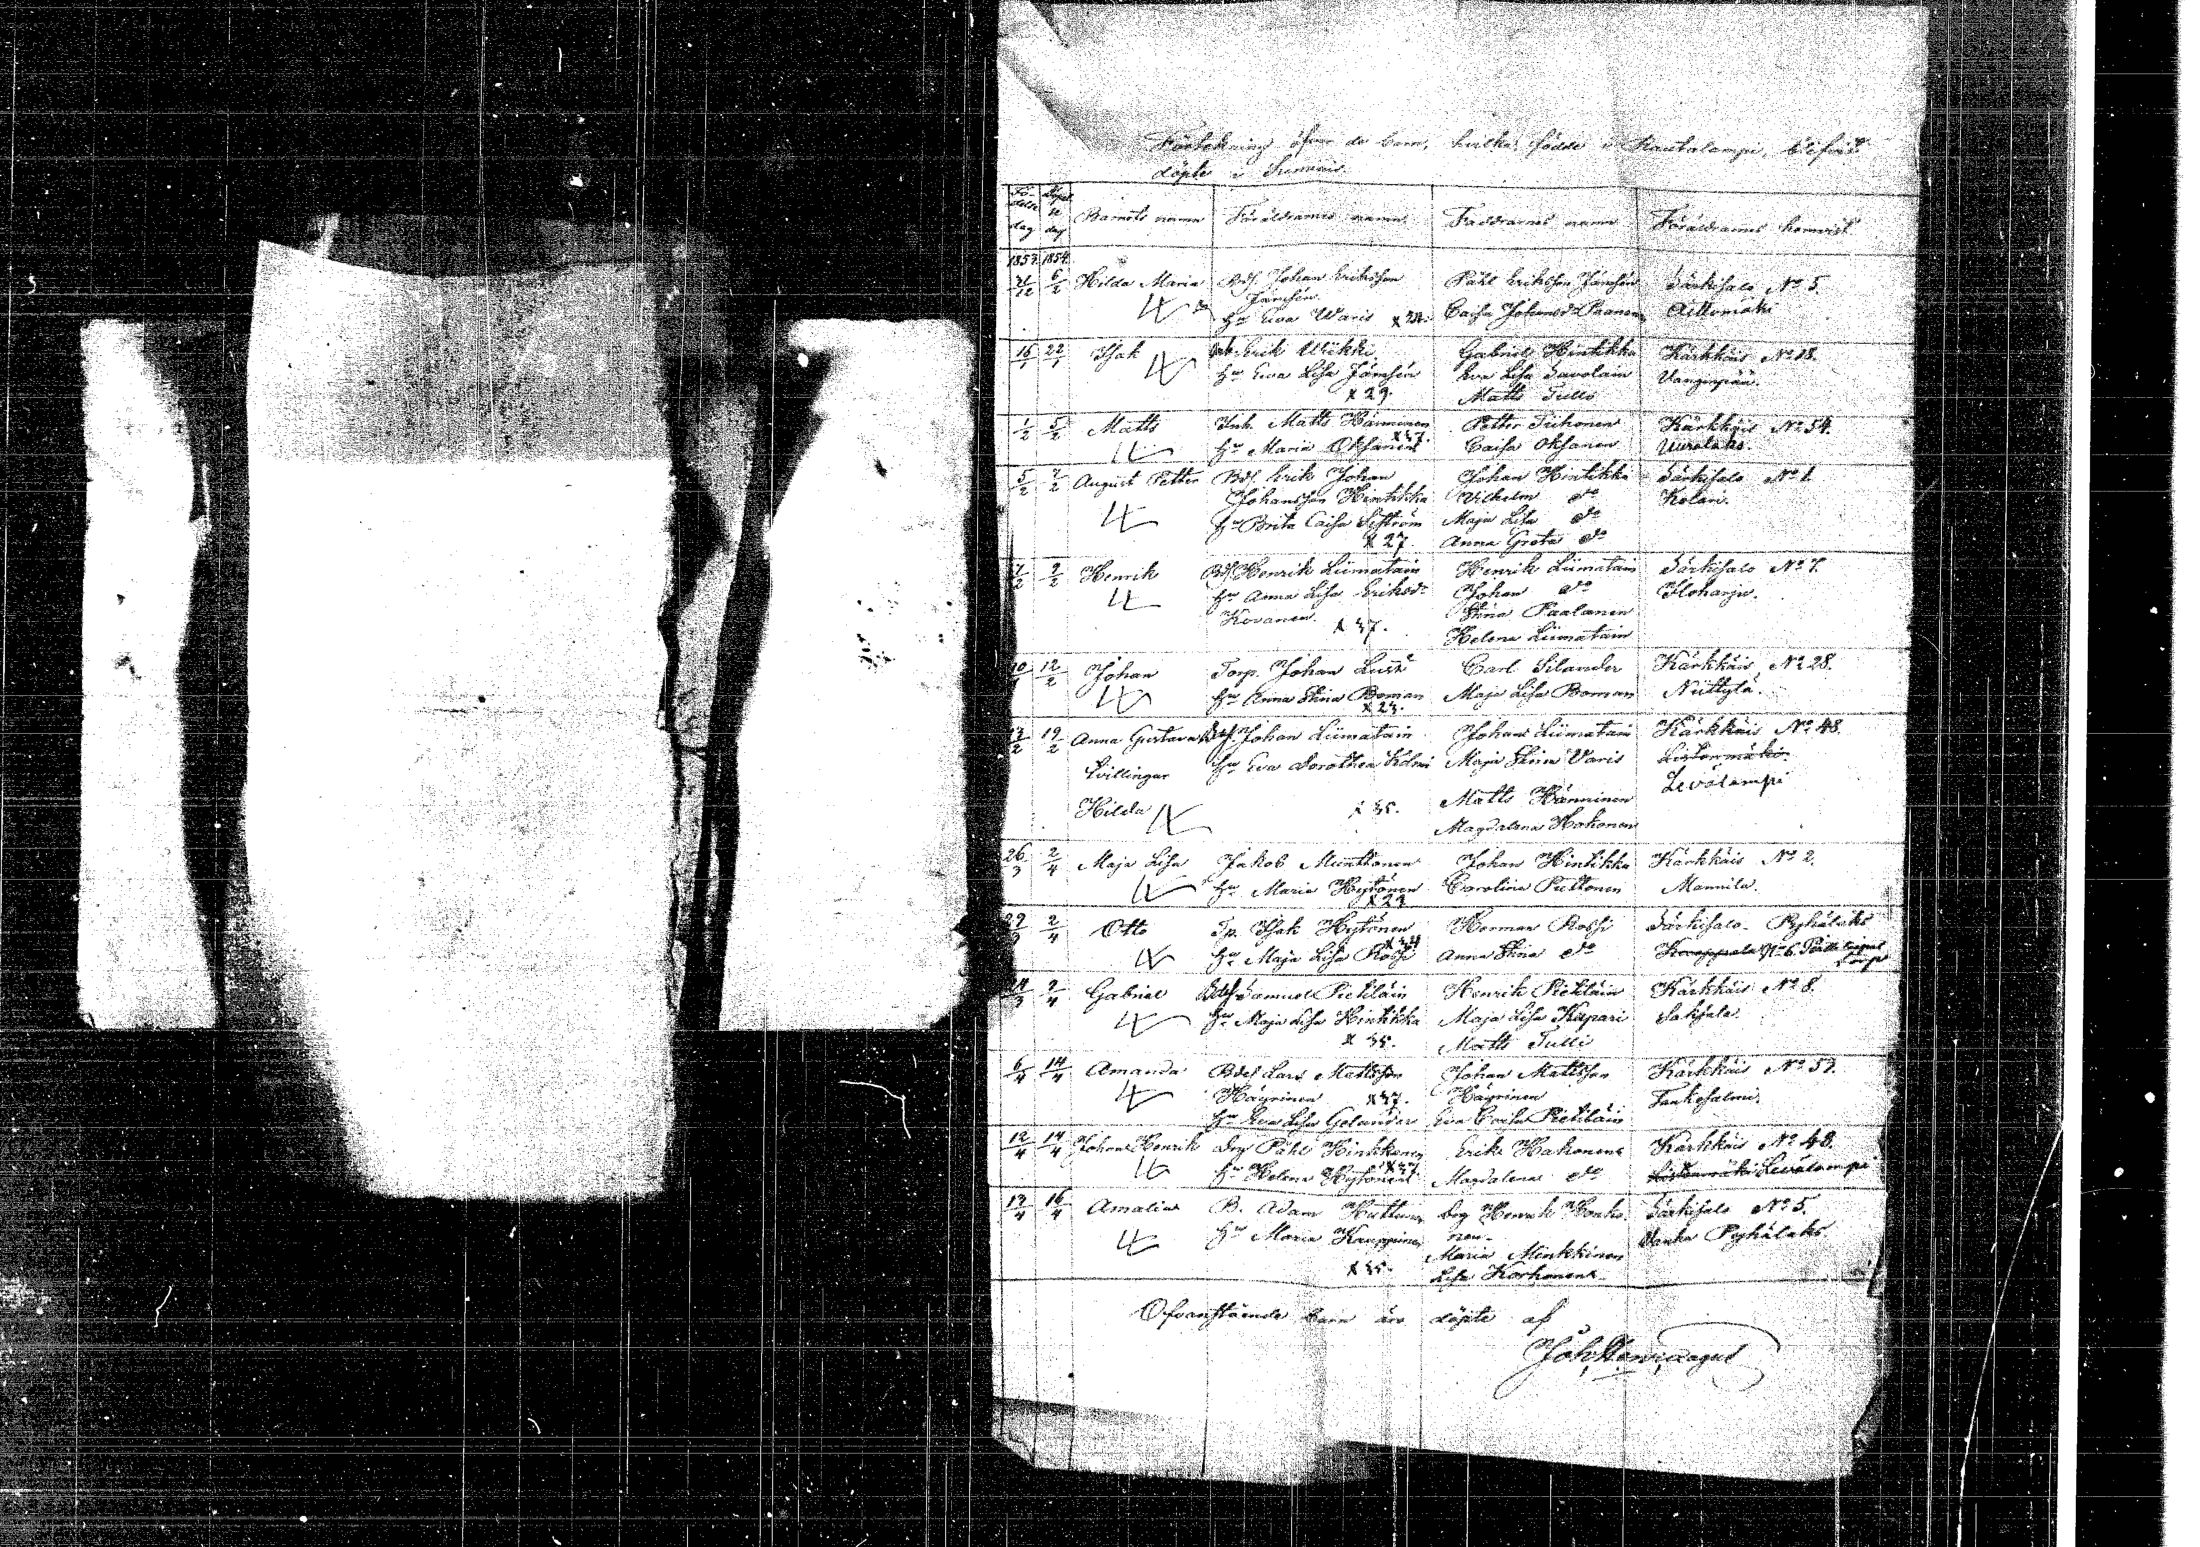 Förtekning öfver de barn, hvilka födde i Rautalampi, blifvit
döpte i Sumiais.
Fö-delse dag Döpel-se dag Barnets namn Föräldrarnes namn Faddrarnes namn Föräldrarnes hemvist
1853 1854
21/12 6/2 Hilda Maria Bds. Johan Eriksson Påhl Eriksson Jämsén Särkisalo No 5.
Jämsén
hu Eva Waris Caisa Johansdr Paananen Aittomäki
16/1 22/1 Isak Erik Wiikki Gabriel Hintikka Kärkkäis No 18.
hu Eva Lisa Jämsén Eva Lisa Savolain Vanginpää.
x 29. Matts Tulli
1/2 5/2 Matts Inh. Matts Hänninen Petter Tiihonen Kärkkäis No 54.
x 37.
hu Maria Oksanen Caisa Oksanen
5/2 7/2 August Petter Bds. Erik Johan Johan Hintikka Särkisalo No 1.
Johansson Hintikka Vilhelm do Kolari.
hu Brita Caisa Maja Lisa do
x 27. Anna Greta do
7/2 9/2 Henrik Bds. Henrik Liimatain Henrik Liimatain Särkisalo No 7.
hu Anna Lisa Eriksdr Johan do Iloharju.
Kovanen Stina Paalanen
x 37. Helena Liimatain
12/2 Johan Torp. Johan Carl Silander Kärkkäis No 28.
hu Anna Stina Boman Maja Lisa Boman Niittylä.
x 23.
17/2 19/2 Anna Gustava Bds. Johan Liimatain Johan Liimatain Kärkkäis No 48.
hu Eva Dorothea Maja Stina Varis
tvillingar Levälampi
Hilda x 35. Matts Hänninen
Magdalena Hakonen
26/3 2/4 Maja Lisa Jakob Minttonen Johan Hintikka Kärkkäis No 2.
hu Maria Hytönen Carolina Puttonen Mannila.
x 29
29/3 2/4 Otto Tp. Isak Hytönen Herman Rossi Särkisalo Pyhälaks
hu Maja Lisa Rossi Anna Stina do No 6.
24/3 2/4 Gabriel Bds. Samuel Pietiläin Henrik Pietiläin Kärkkäis No 8.
hu Maja Lisa Hintikka Maja Lisa Kapari Sahiala.
x 35. Matts Tulli
6/4 14/4 Amanda Bds Lars Mattsson Johan Mattsson Kärkkäis No 57.
Häyrinen x 37. Häyrinen Tankosalmi.
hu Eva Lisa Gelander Eva Caisa Pietiläin
12/4 14/4 Johan Henrik Drg Påhl Hinkkanen Erik Hakonen Kärkkäis No 48.
x 37
hu Helena Hytönen Magdalena do Levälampi
13/4 16/4 Amalia B. Adam Huttunen Drg Henrik Honko- Särkisalo No 5.
hu Maria Kauppinen nen Vanha Pyhälaks
Maria Minkkinen
x 35. Lisa Korhonen
Ofvanstående barn äro döpte af
Joh. Henr. Wegelius